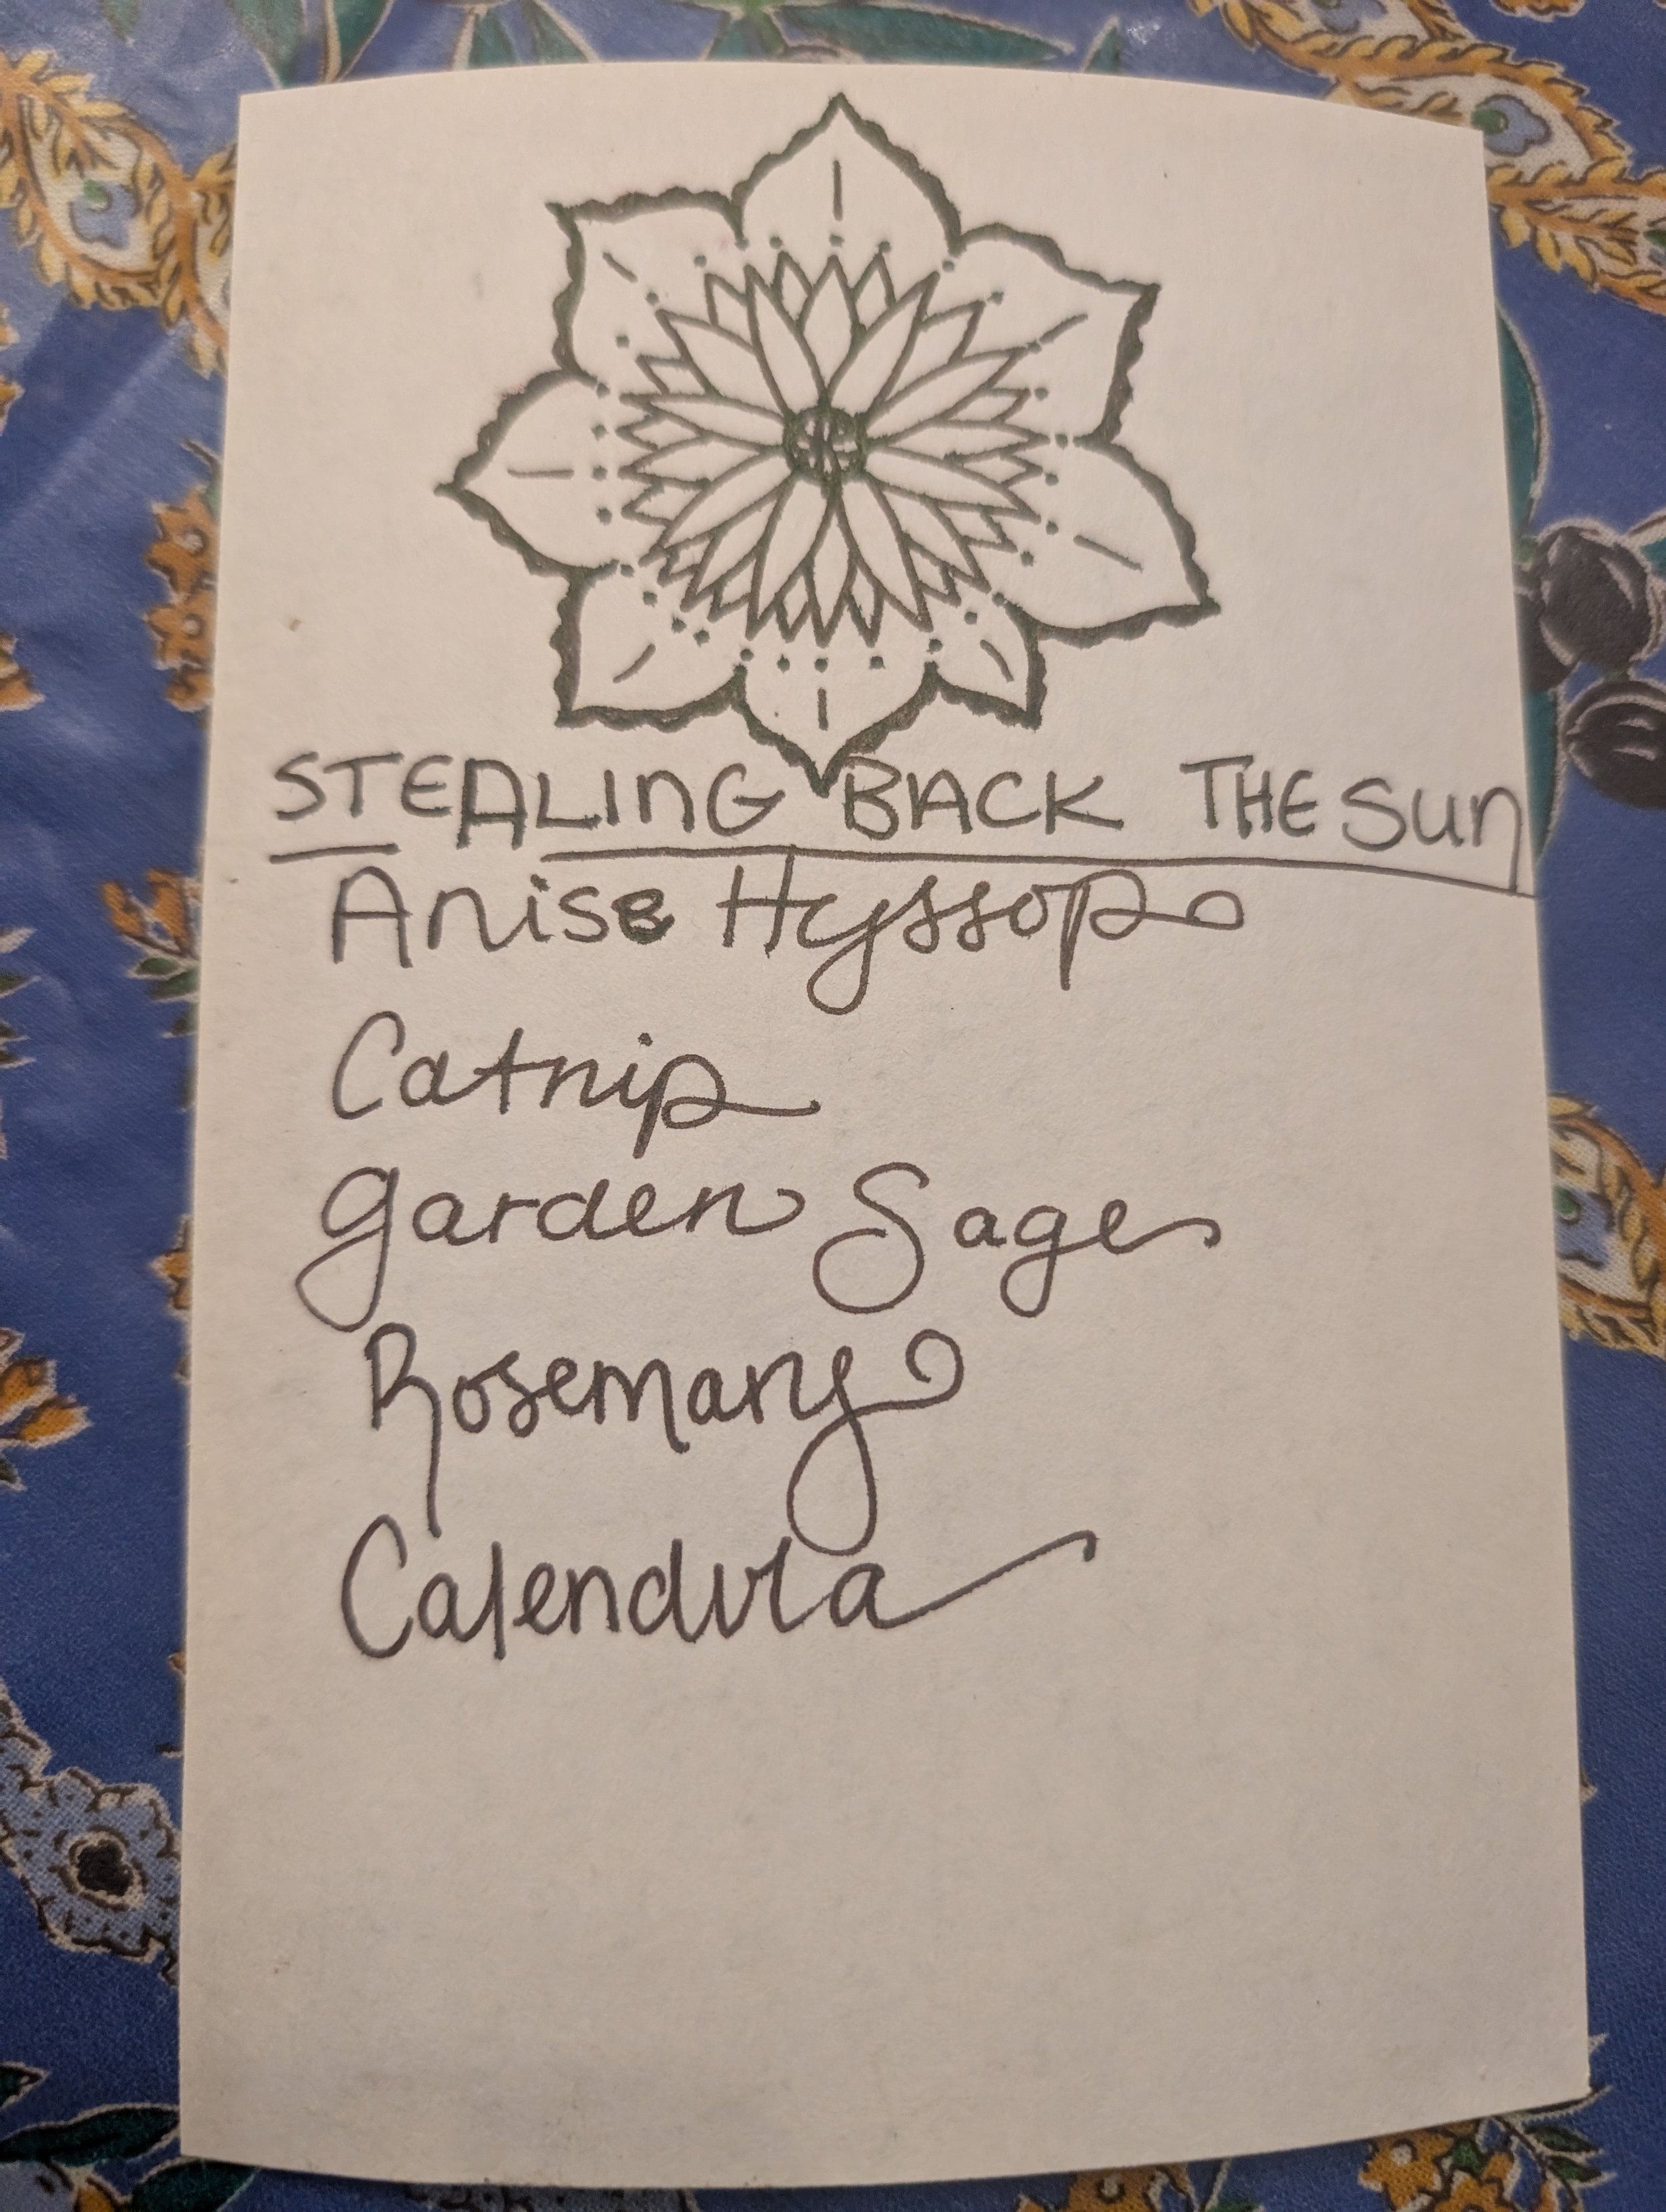 STEALING BACK THE SUN
Anise Hyssop
Catnip
Garden Sage
Rosemary
Calendula